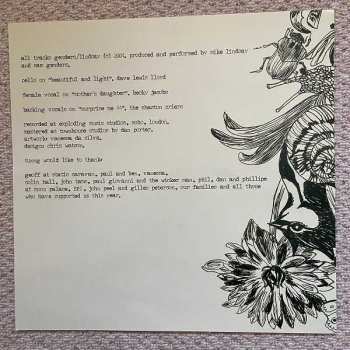 all tracks genders/lindsay (c) 2004, produced and performed by mike lindsay
and sam genders.
cello on "beautiful and light", dave lewis lloyd
female vocal on "mother's daughter", becky jacobs
backing vocals on "surprise me 44", the chariot criers
recorded at exploding music studios, soho, london.
mastered at townhouse studios by dan porter.
artwork: vanessa da silva.
design: chris waters.
tunng would like to thank:
geoff at static caravan, paul and bex, vanessa,
colin hall, john tenn, paul giovanni and the wicker man, phil, dan and phillipe
at momo palace, fri, john peel and gilles peterson, our families and all those
who have supported us this year.